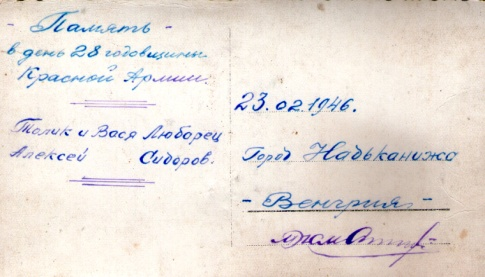 - Память -
в день 28 годовщины
Красной Армии.
Толик и Вася Люборец
Алексей Сидоров.
23.02.1946.
Город Надьканижа
- Венгрия -